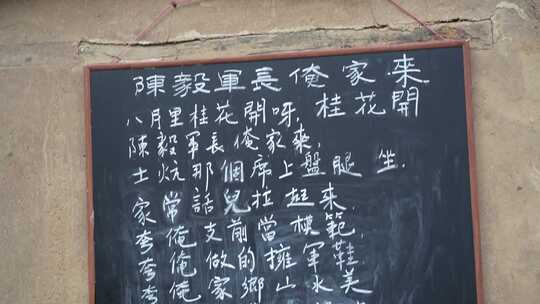 陳毅軍長俺家來
八月里桂花開呀,桂花開
陳毅軍長俺家來,
土炕那個席上盤腿坐.
家常話兒拉起來.
夸俺支前當模範,
夸俺做的擁軍鞋
夸俺家鄉山水美